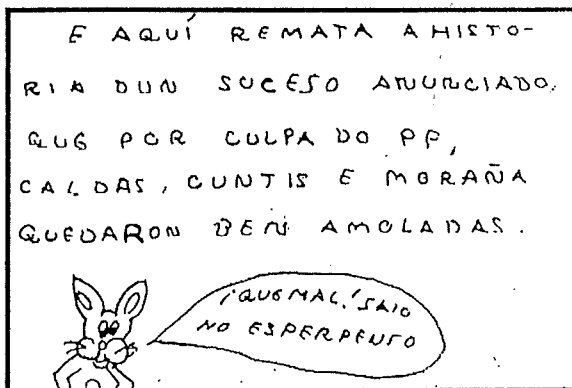 E AQUÍ REMATA A HISTO-
RIA DUN SUCESO ANUNCIADO,
QUE POR CULPA DO PP,
CALDAS, CUNTIS E MORAÑA
QUEDARON BEN AMOLADAS.
¡QUE MAL! SAIO
NO ESPERPENTO